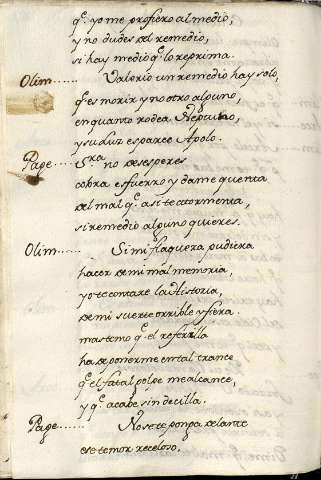 q.e yo me profiero al medio,
y no dudes del remedio,
si hay medio q.e lo reprima.
Olim...... Valerio un remedio hay solo,
q.e es morir y no otro alguno,
en quanto rodea Neptuno,
y su luz esparce Apolo.
Page..... S.ra no desesperes
cobra esfuerzo y dame quenta
del mal q.e asi te atormenta,
si remedio alguno quieres.
Olim...... Si mi flaqueza pudiera
hacer de mi mal memoria,
yo te contare la Historia,
de mi suerte orrible y fiera.
mas temo q.e el referilla
ha de ponerme en tal trance
q.e el fatal golpe me alcance,
y q.e acabe sin decilla.
Page....... No se te ponga delante
ese temor receloso,